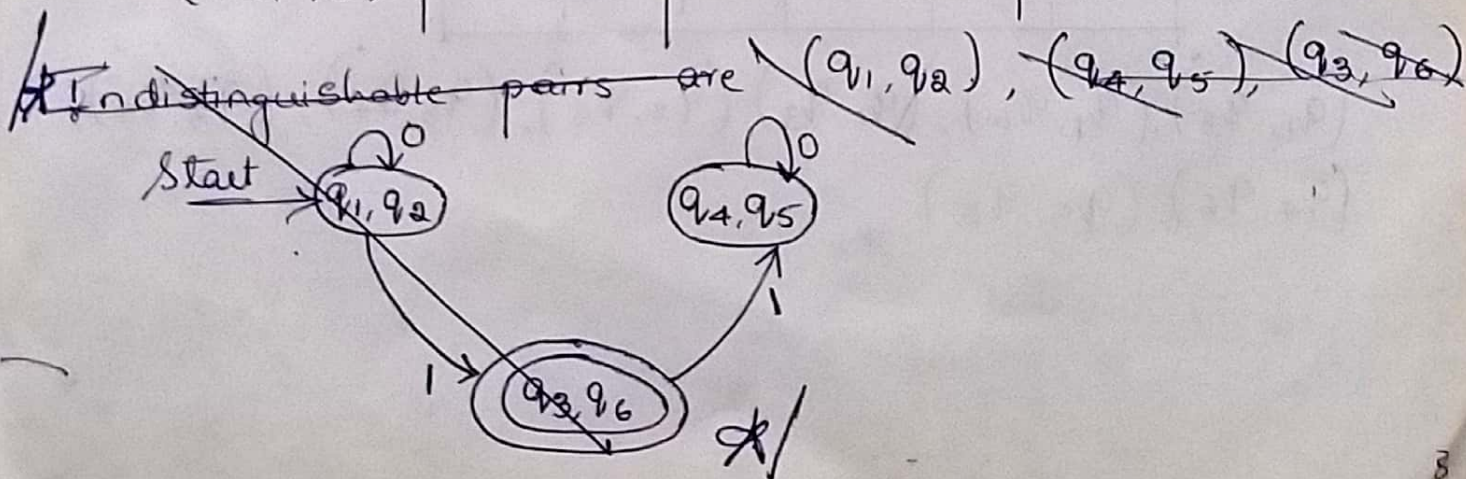 /* Indistinguishable pairs are (q1, q2), (q4, q5), (q3, q6)
Start
0
q1, q2
0
q4, q5
1
1
q3, q6
*/
3